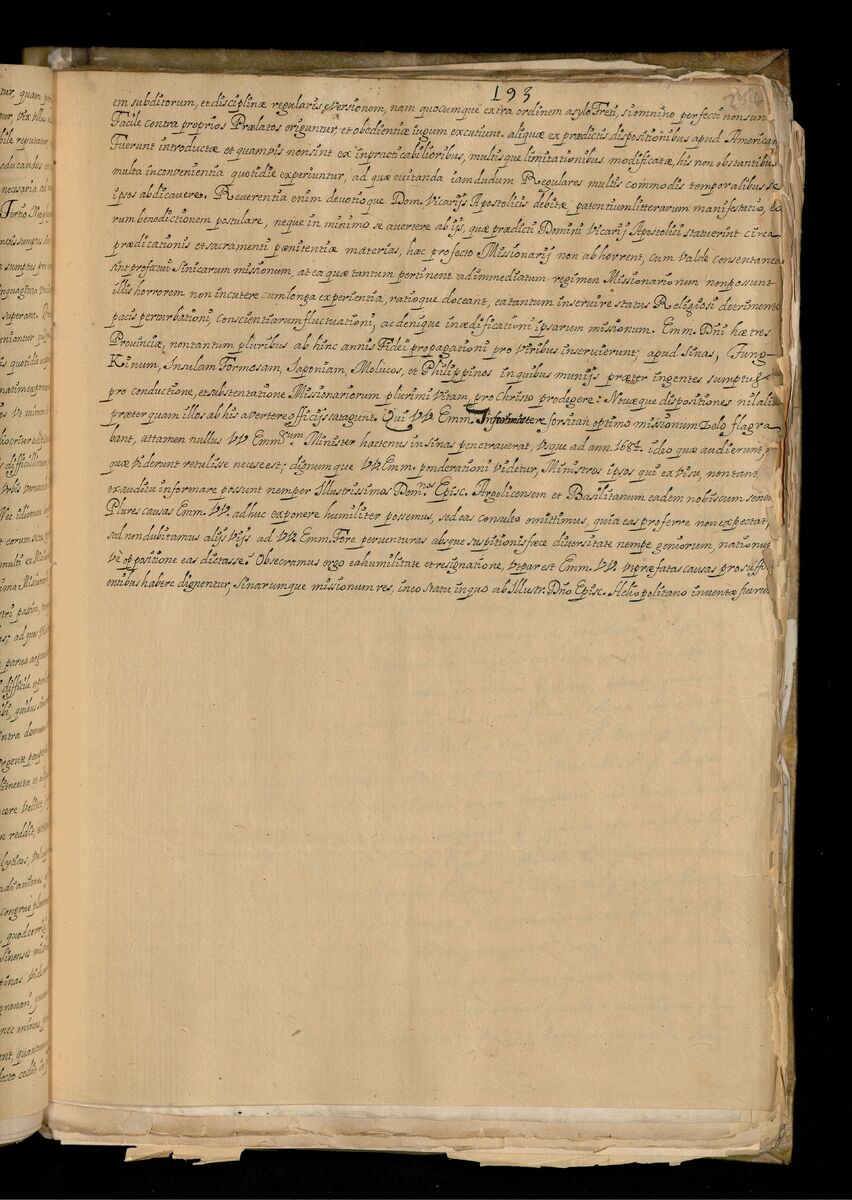 193
254
em subditorum, et disciplinæ regularis versionem, nam quocumque extra ordinem asylo Freti, si omnino perfecti non sun
Facile contra proprios Prælatos origuntur, et obedientiæ iugum excutiunt. aliquæ ex prædictis dispositionibus apud American
Fuerunt introductæ et quamvis non sint ex inpracticabilioribus, multisque limitationibus modificatæ, his non obstantibus
multa inconvenientia quotidie experiuntur, ad quæ evitanda iam dudum Regulares multis commodis temporalibus se
ipsos abdicavere. Reverentia enim devotioque Dom. Vicarijs Apostolicis debitæ, patentium litterarum manifestatio, eo
rum benedictionem postulare, neque in minimo se avertere ab ijs, quæ prædicti Domini Vicarij Apostolici statuerint circa
prædicationis et sacramenti pænitentiæ materias, hac profecto Missionarij non abhorrent, cum valde consentanea
sint profectui Sinicarum missionum, at ea quæ tantum pertinent ad immediatum regimen Missionariorum non possunt
illis horrorem non incutere cum longa experientia, ratioque doceant, ea tantum inservire status Religiosi detrimento
pacis perturbationi, conscientiarum fluctuationi, ac denique inædificationi ipsarum missionum. Emm. Dni hæ tres
Provinciæ, non tantum pluribus ab hinc annis Fidei propagationi pro viribus inservierunt, apud Sinas, Tung-
Kinum, Insulam Formosam, Iaponiam, Molucos, et Philippinos in quibus munijs præter ingentes sumptus
pro conductione, et substentatione Missionariorum plurimi vitam, pro Christo prodegere: Novæque dispositiones nil aliu
præterquam illos ab his avertere officijs satagunt. Qui VV Emm. forsitan optimo missionum zelo flagra
bant, attamen nullus VV Emm.rum Minister hactenus in sinas penetraverat, vsque ad ann. 1684. ideo quæ audierunt,
quæ viderunt retulisse necesse est; dignumque VV Emm. ponderationi videtur, Ministros ipsos qui ex visu, non tan
ex auditu informare possunt nemper Illustrissimos Dom.nos Episc. Argolicensem et Basilitanum eadem nobiscum sent
Plures causas Emm. VV. adhuc exponere humiliter possemus, sed eas consulto omittimus, quia eas proferre non expectat,
sed non dubitamus alijs vijs ad VV Emm. Fore perventuras absque suspitionis fece diversitate nempe geniorum, nationu
vè oppositione eas dictasse. Obsecramus ergo ea humilitate et resignatione, vt par est Emm. VV vt præfatas causas pro suffici
entibus habere dignentur, Sinarumque missionum res, in eo statu in quo ab Illustr. Dño Episc. Heliopolitano inventæ fuerun